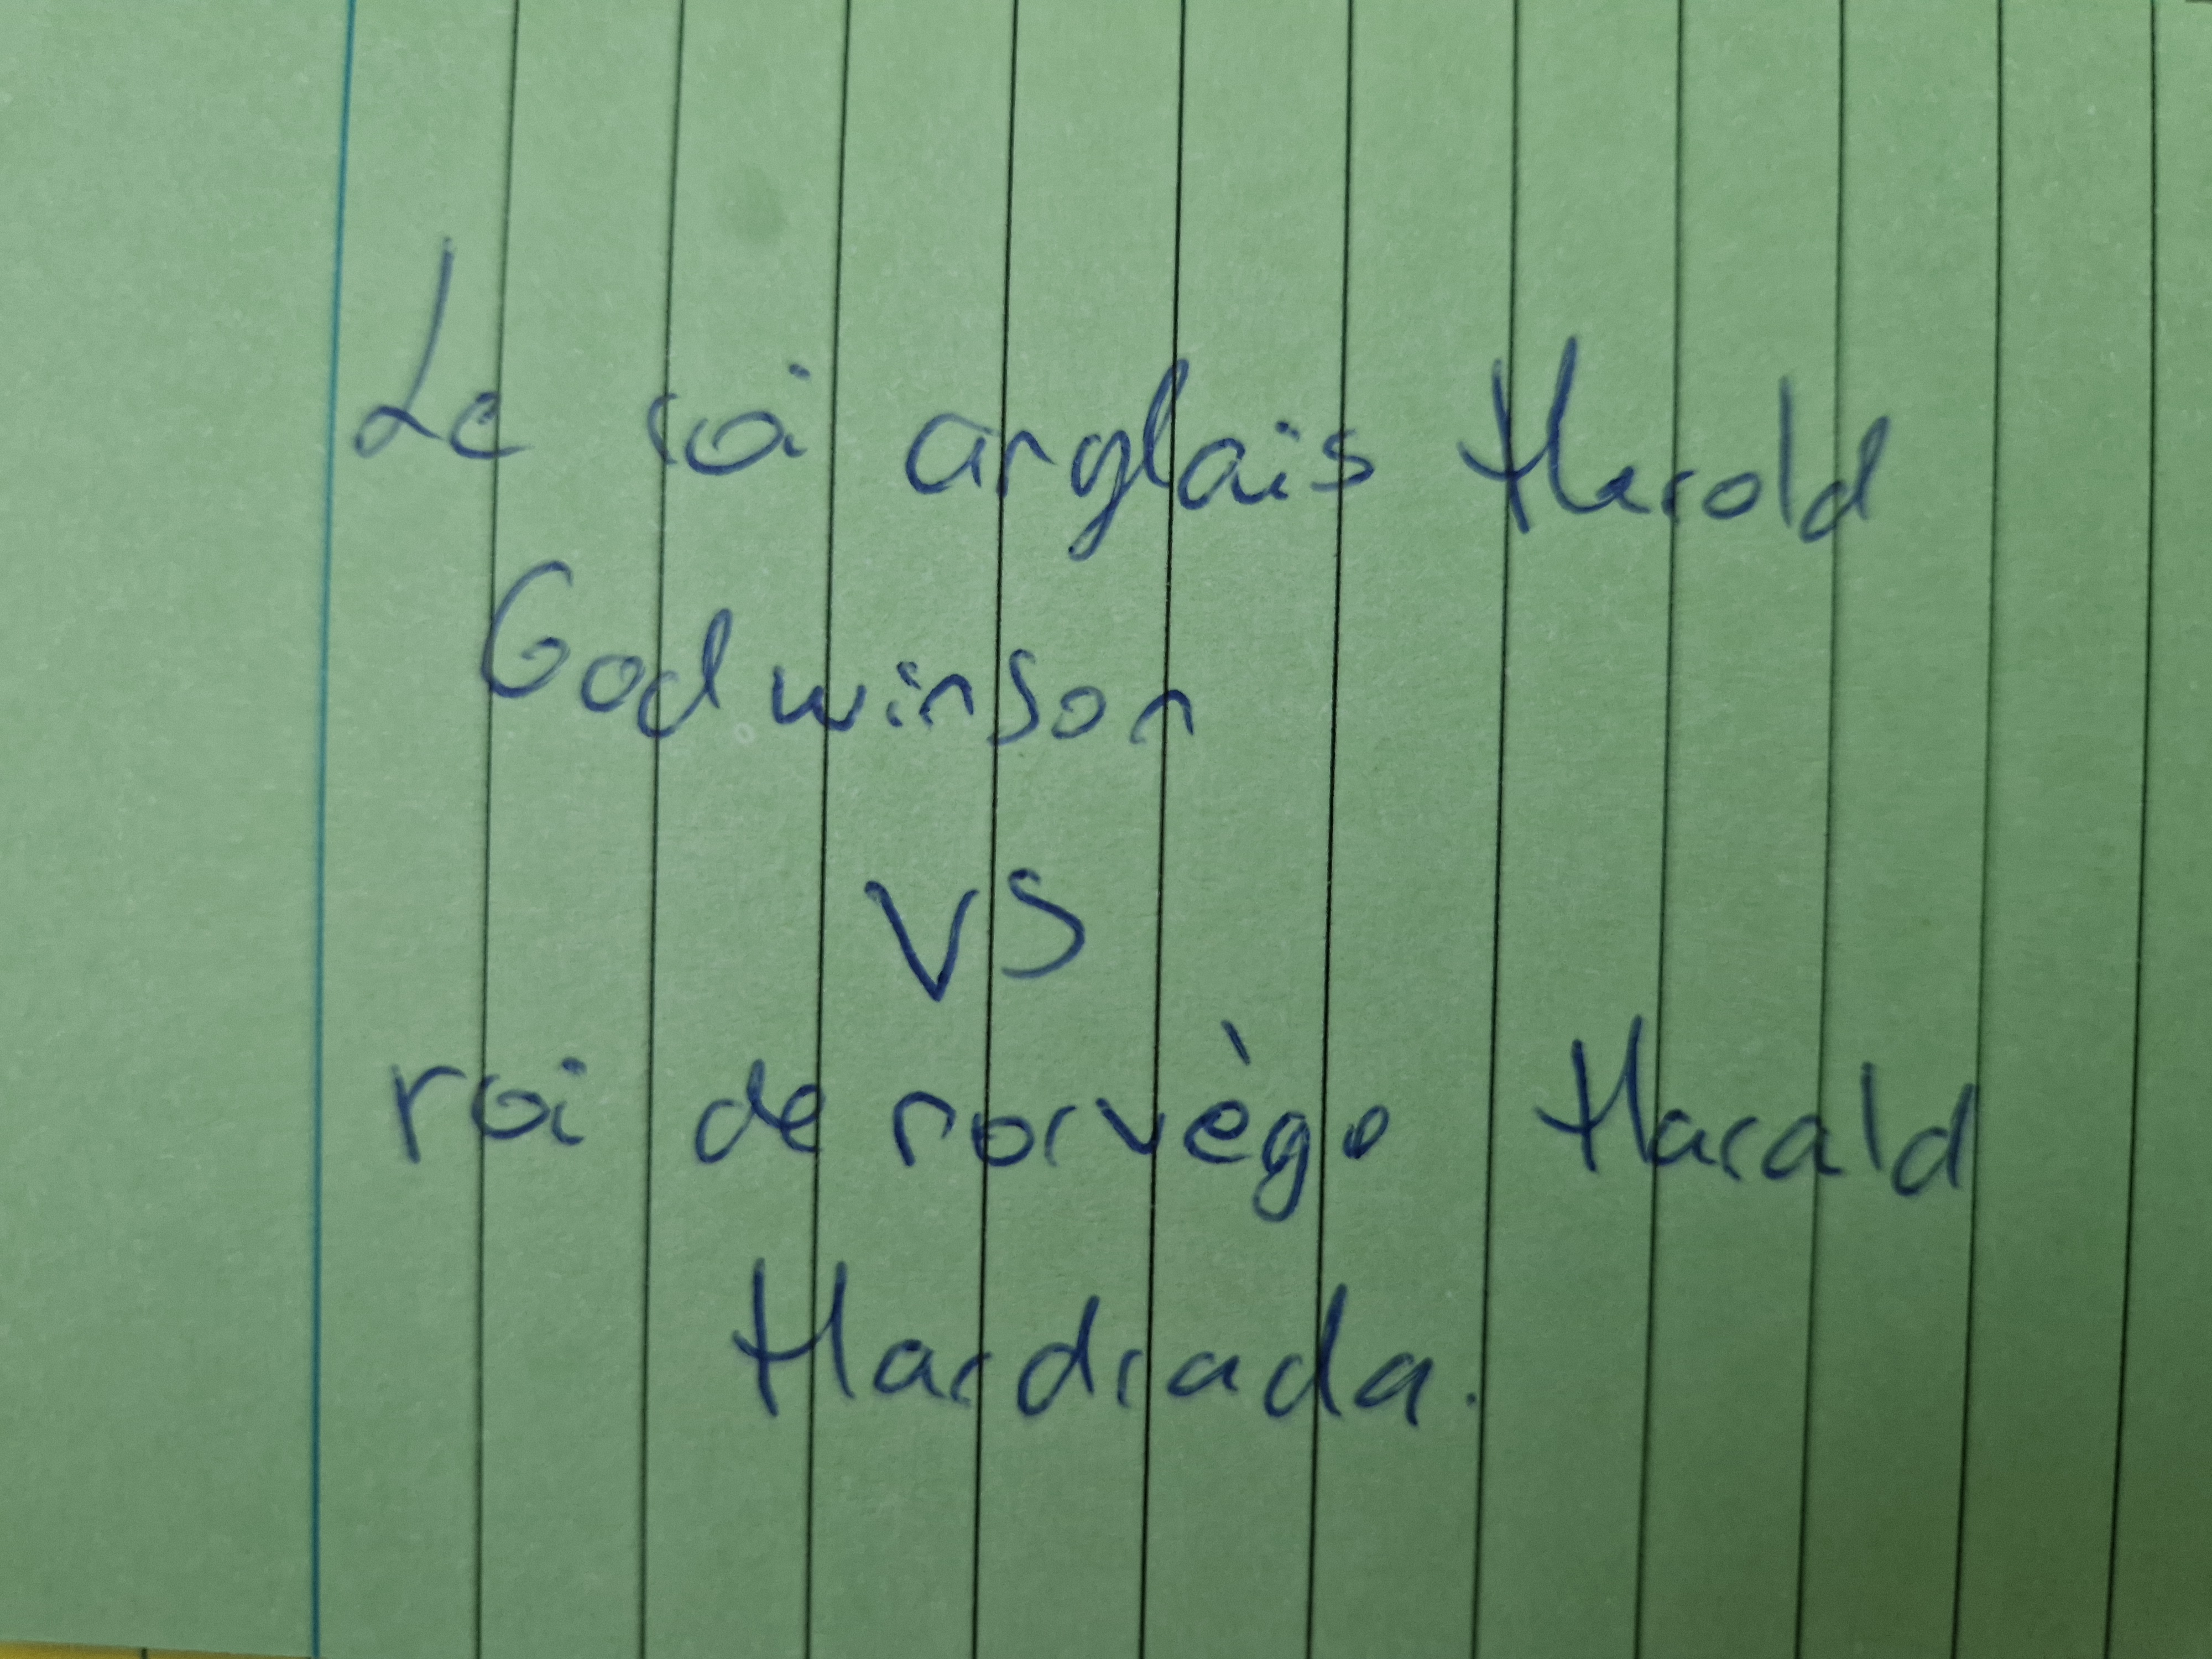 Le roi anglais Harold
Godwinson
VS
roi de norvège Harald
Hardrada.